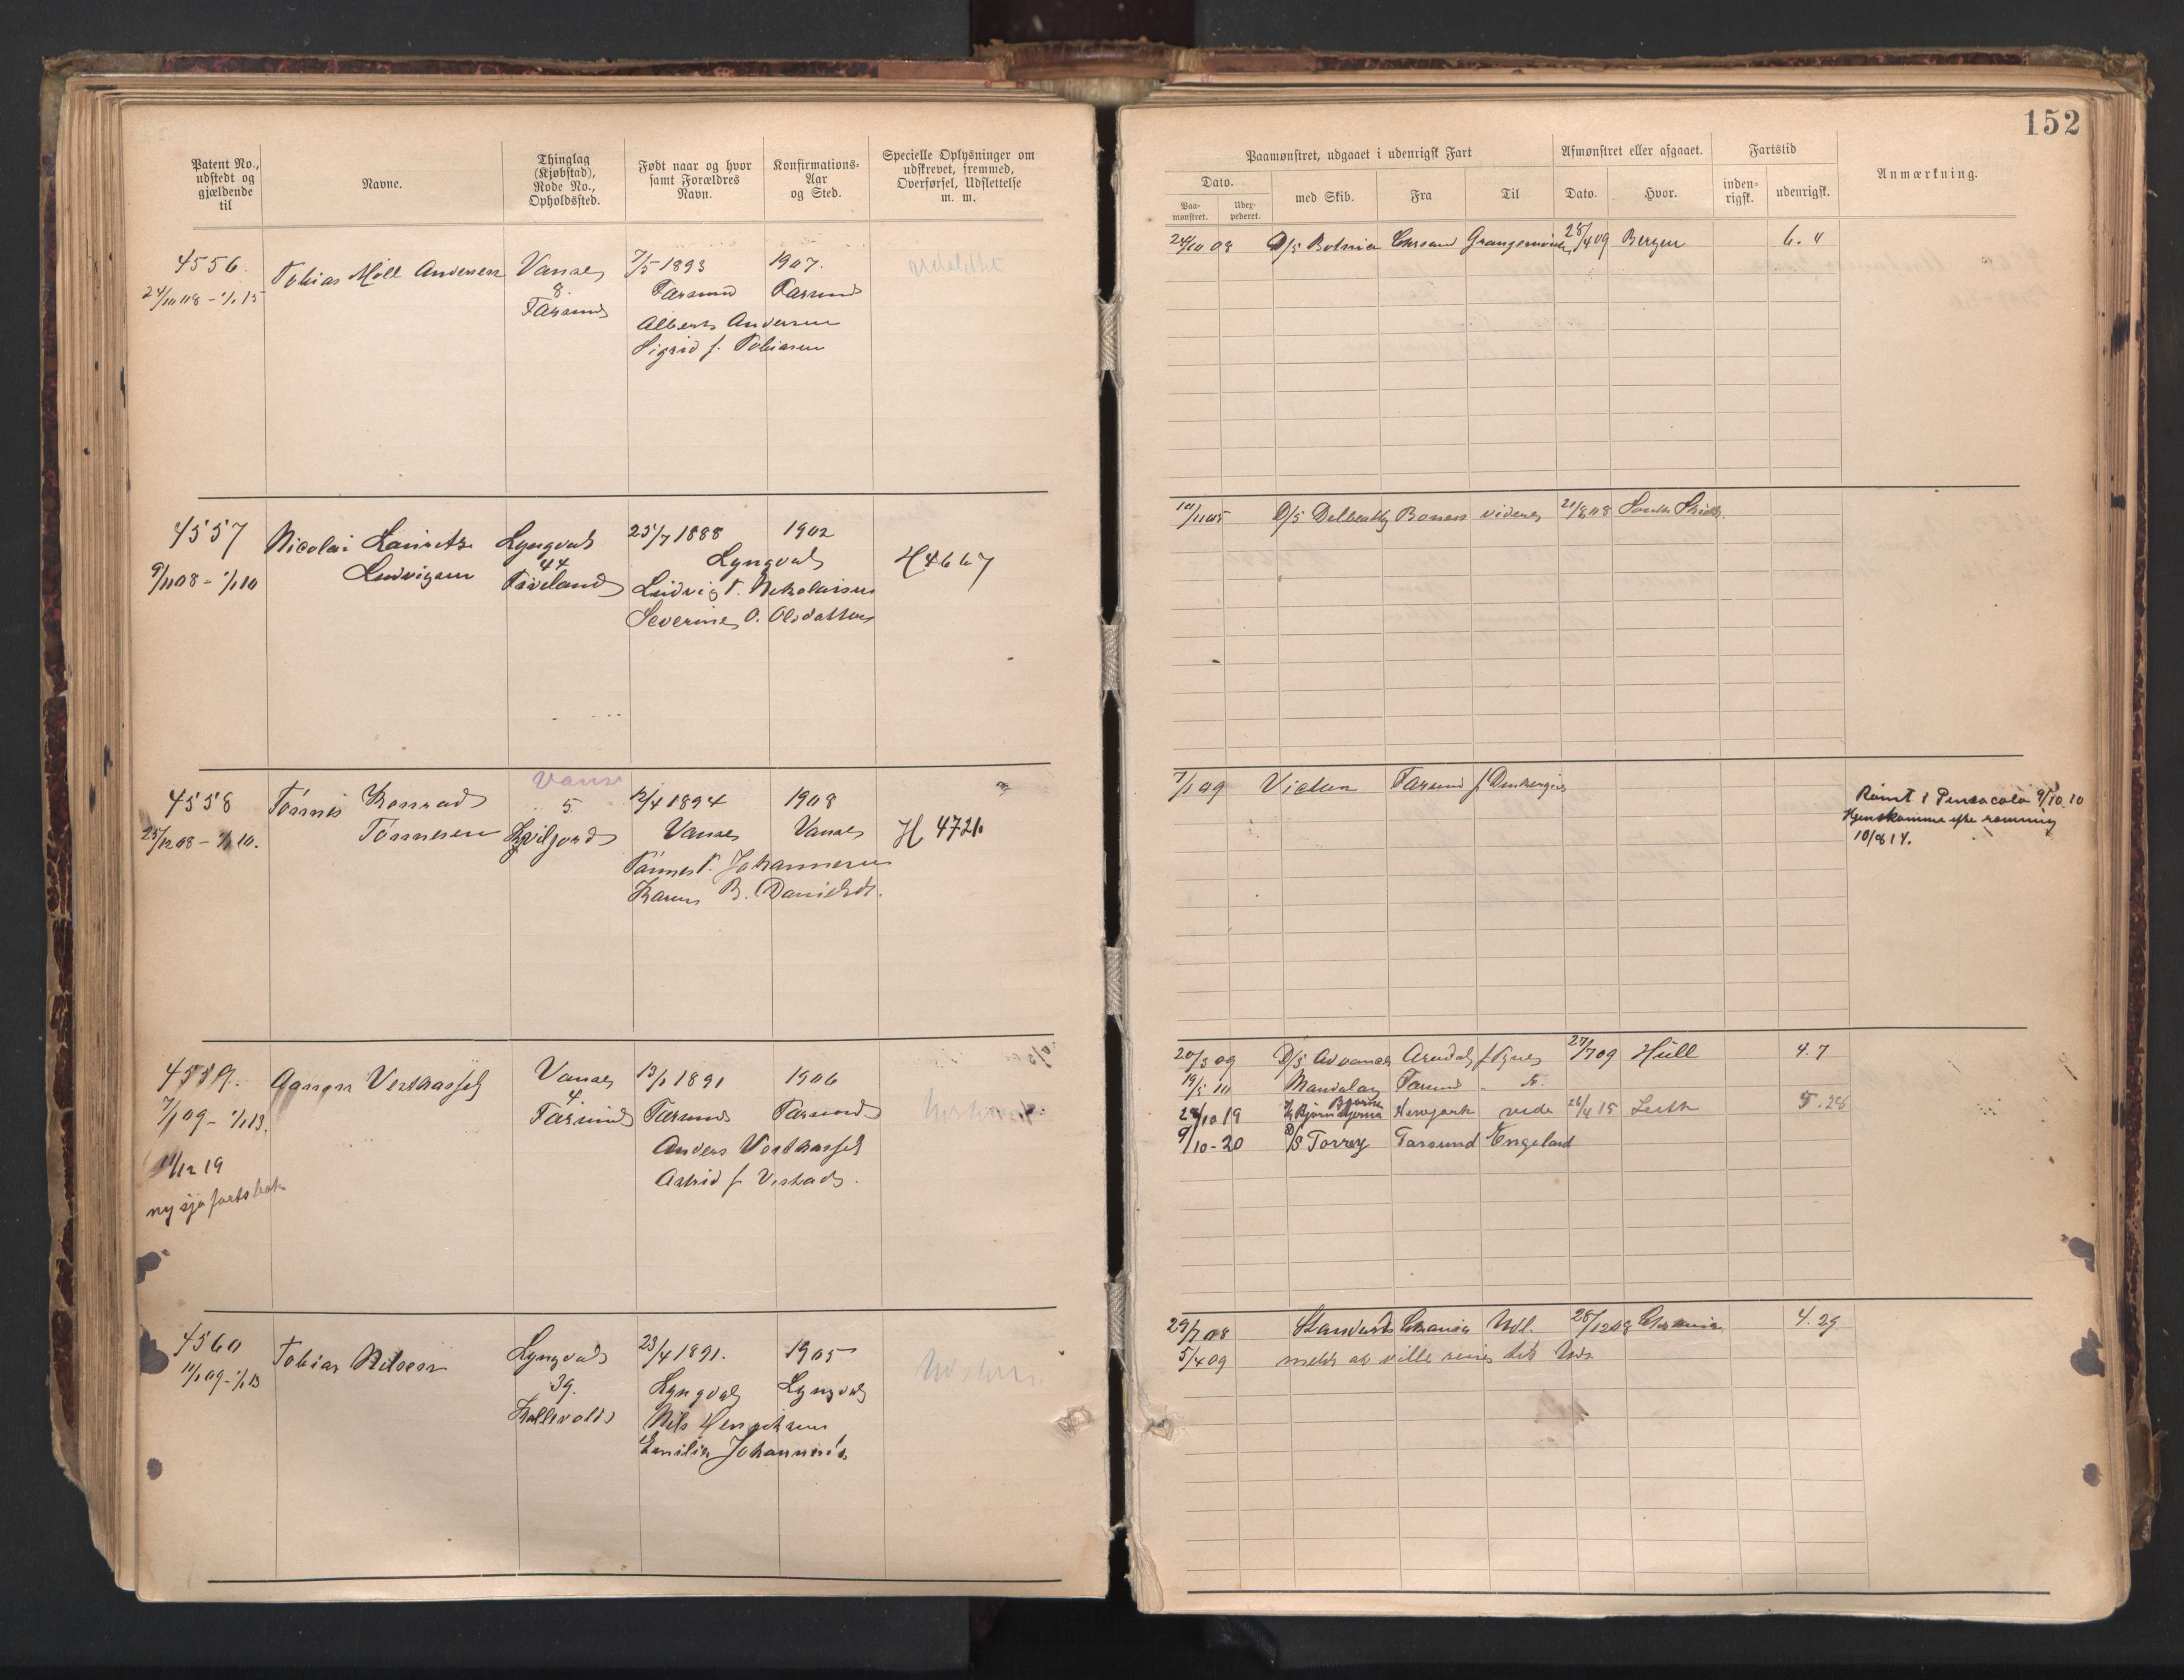 152
Patent No., udstedt og gjældende til
Navne.
Thinglag (Kjøbstad), Rode No., Opholdssted.
Født naar og hvor samt Forældres Navn.
Konfirmations-Aar og Sted.
Specielle Oplysninger om udskrevet, fremmed, Overførsel, Udslettelse m. m.
Paamønstret, udgaaet i udenrigsk Fart
Afmønstret eller afgaaet.
Fartstid
Anmærkning.
Dato.
Paa-mønstret.
Udex-pederet.
med Skib.
Fra
Til
Dato.
Hvor.
inden-rigsk.
udenrigsk.
4556.
24/10 08 - 1/1 15
Tobias Møll Andersen
Vanse
8.
Farsund
7/5 1893
Farsund
Alberts Andersen
Sigrid f. Tobiasen
1907.
Farsund
udslettet
24/10 08 D/S Botnia Chrsand Grangemouth 28/4 09 Bergen 6. "
4557
9/11 08 - 1/1 10
Nicolai Lauritz
Ludvigsen
Lyngdal
44
Faveland
25/7 1888 1902
Lyngdal
Ludvig T. Nikolaisen
Severine O. Olsdatter
H 4667
10/11 05 D/S Dalbeatty videre 21/8 08 South Shields
4558
23/12 08 - 1/1 10.
Tønnes Konrad
Tønnesen
Vanse
5
12/4 1894
Vanse
Tønnes T. Johannesen
Karen B. Danielsdt.
1908
Vanse
H 4721
7/1 09 Farsund f
Rømt i Pensacola 9/10 10
Hjemkomme efter rømning
10/8 14.
4559.
7/1 09 - 1/1 13.
11/12 19
ny sjøfartsbok
Vesthassel
Vanse
4.
Farsund
13/1 1891
Farsund
Anders Vesthassel
Astrid f. Vestad.
1906
Farsund
20/3 09 D/S Advance Arendal f Tyne 27/7 09 Hull 4. 7
19/5 10 Mandalay Farsund
24/10 19 Bjørn Bjørnson Newyork vide 26/4 15 Leith 5. 28
9/10-20 D/S Torrey Farsund Engeland
4560
11/1 09 - 1/1 13
Tobias Nilsen
Lyngdal
39.
Kallevold
23/4 1891.
Lyngdal
Nils Henriksen
Emilie Johannesd.
1905
Lyngdal
29/7 08 Standard Chrania Udl. 28/12 08 Chrania 4. 29
5/4 09 meldt at ville reise til Uds.